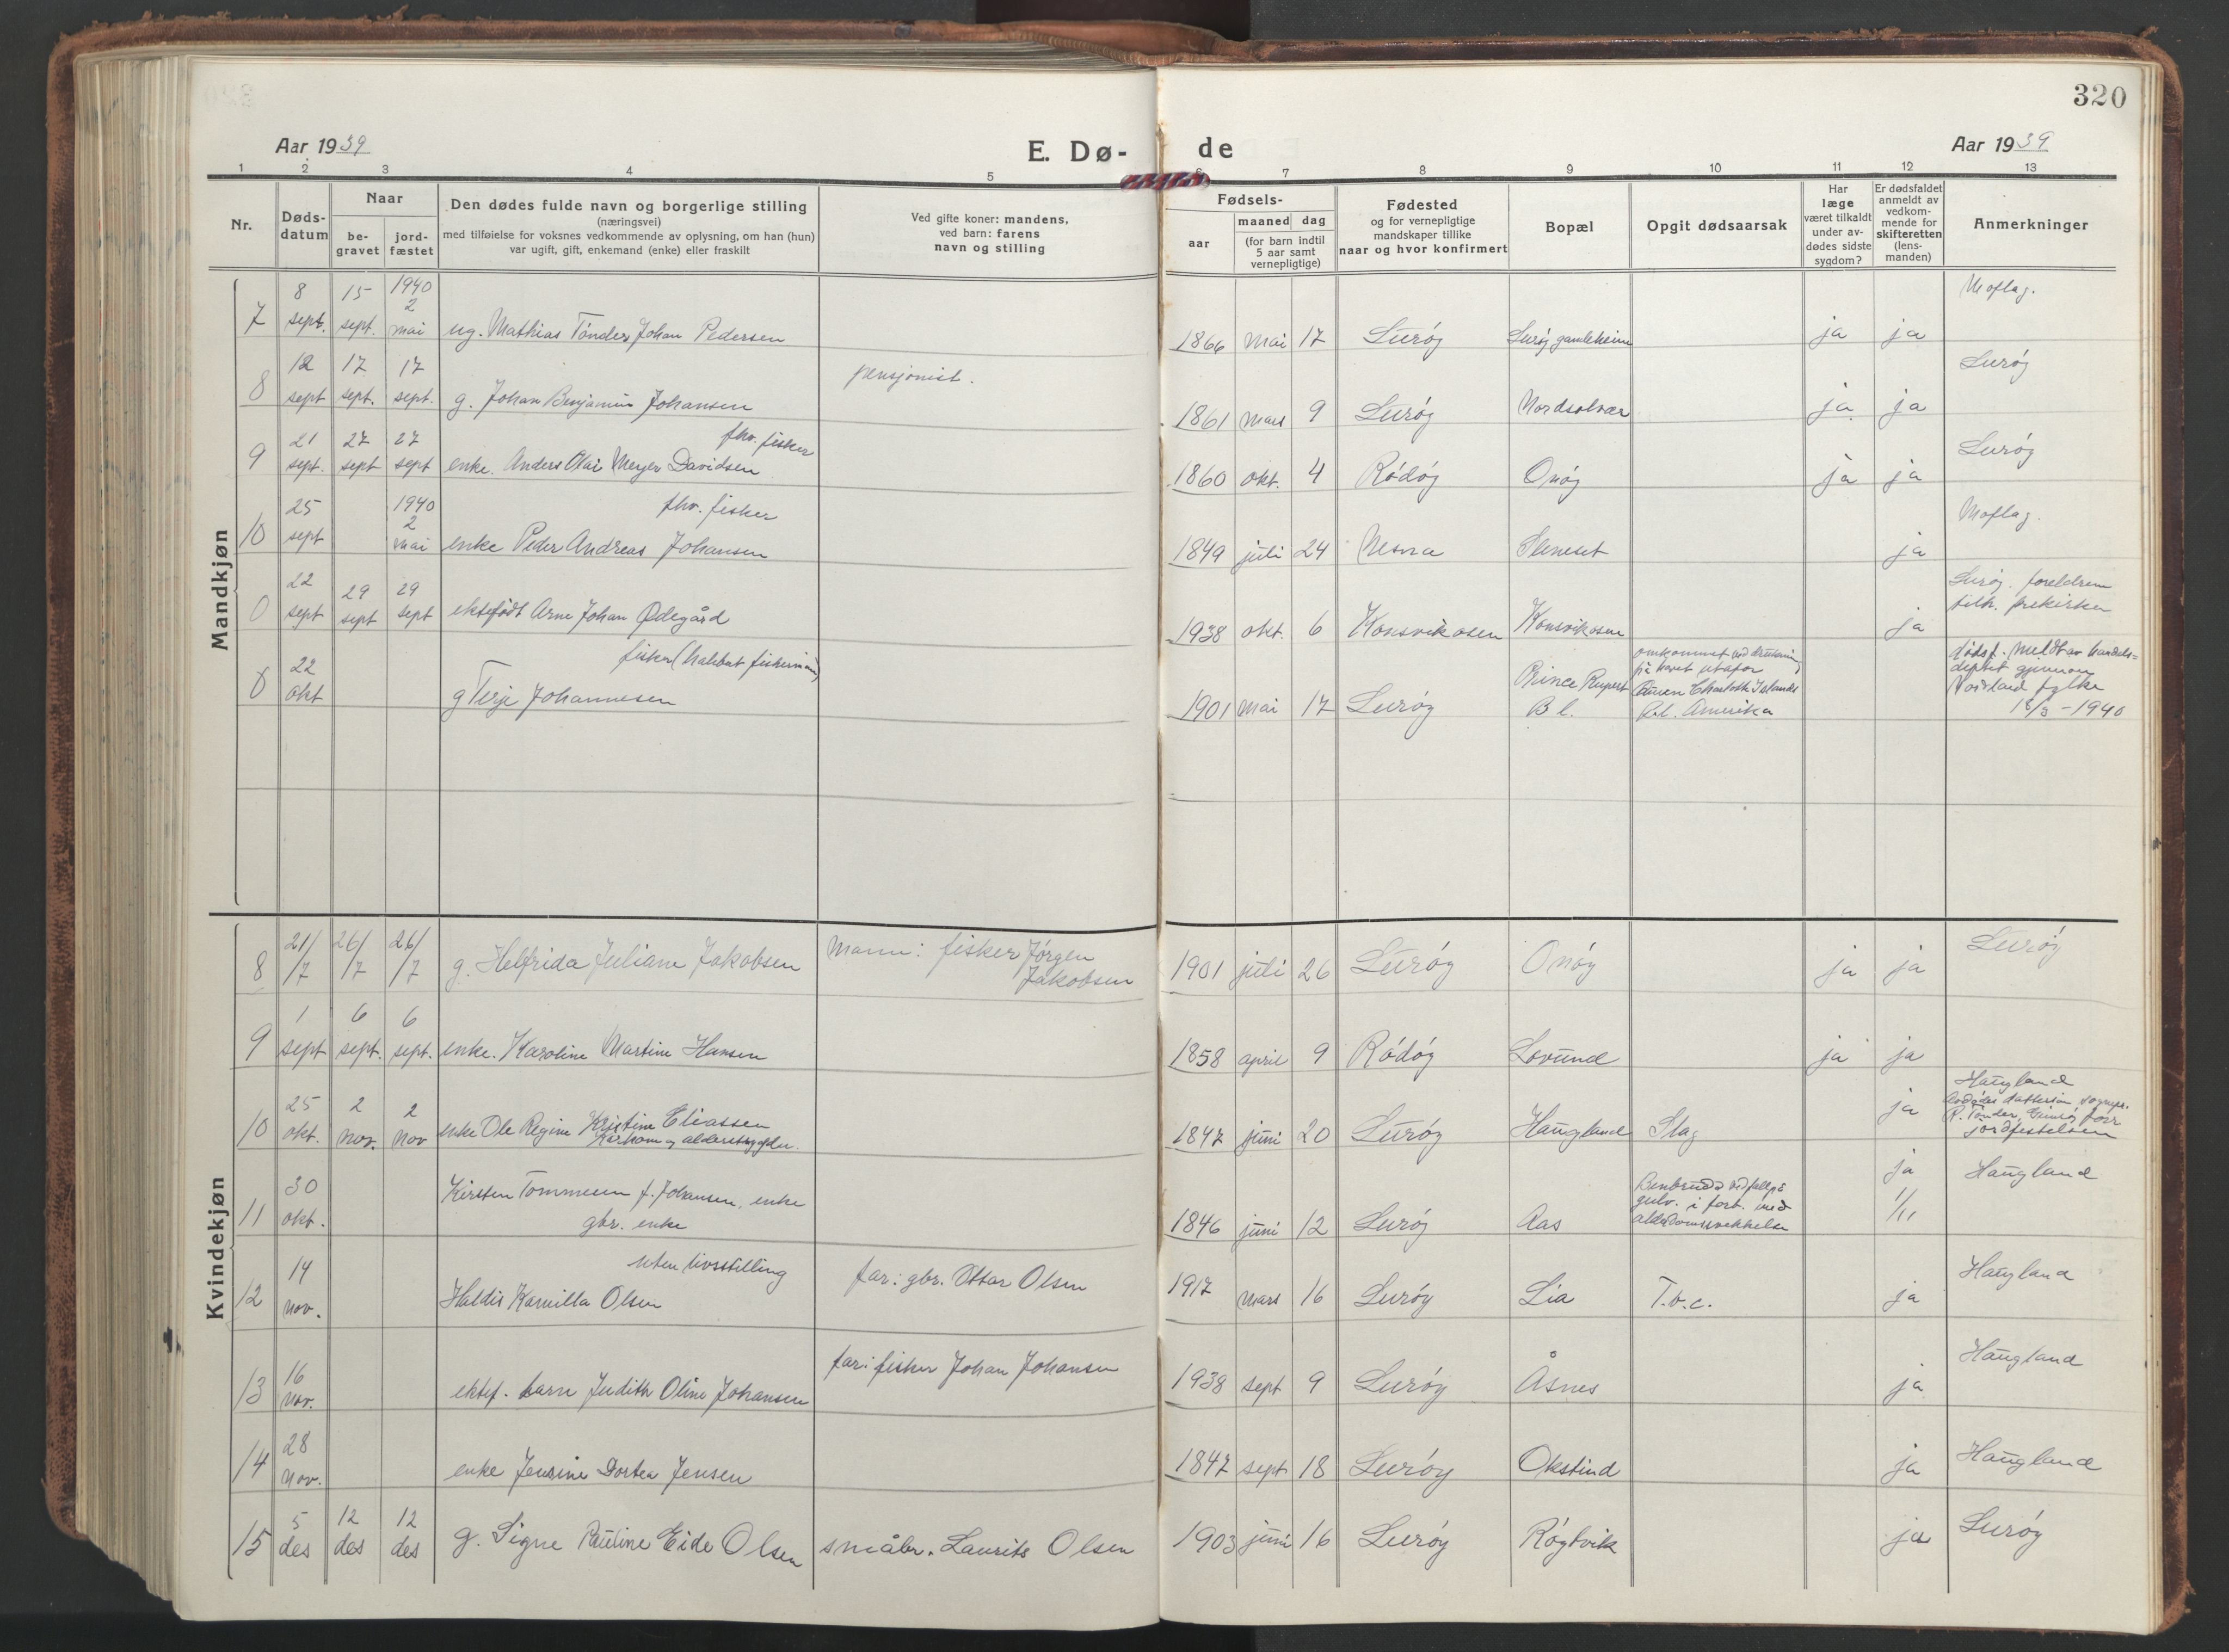 320
Aar 1939
E. Dø-
de
Aar 1939
1 2 3 4 5 6 7 8 9 10 11 12 13
Nr.
Døds-
datum
Naar
be-
gravet
jord-
fæstet
Den dødes fulde navn og borgerlige stilling
(næringsvei)
med tilføielse for voksnes vedkommende av oplysning, om han (hun)
var ugift, gift, enkemand (enke) eller fraskilt
Ved gifte koner: mandens,
ved barn: farens
navn og stilling
Fødsels-
aar
maaned dag
(for barn indtil
5 aar samt
vernepligtige)
Fødested
og for vernepligtige
mandskaper tillike
naar og hvor konfirmert
Bopæl
Opgit dødsaarsak
Har
læge
været tilkaldt
under av-
dødes sidste
sygdom?
Er dødsfaldet
anmeldt av
vedkom-
mende for
skifteretten
(lens-
manden)
Anmerkninger
Mandkjøn
7 8 sept. 15 sept. 1940 2 mai ug. Mathias Tönder Johan Pedersen 1866 mai 17 Luröy Luröy gamleheim ja ja Moflag.
8 12 sept 17 sept. 17 sept. g. Johan Benjamin Johansen pensjonist. 1861 mars 9 Luröy Nordsolvær ja ja Luröy
fhv. fisker
9 21 sept. 27 sept 27 sept enke. Anders Olai Meyer Davidsen 1860 okt. 4 Rödöy Onöy ja ja Luröy
fhv. fisker
10 25 sept 1940 2 mai enke Peder Andreas Johansen 1849 juli 24 Nesna Sleneset ja Moflag.
0 22 sept 29 sept 29 sept ektefödt Arne Johan Ødegård 1938 okt. 6 Konsvikosen Konsvikosen ja Luröy. foreldrene
tilh. frikirken
fisker (halibut fisherman)
8 22 okt g Terje Johannesen 1901 mai 17 Luröy Prince Rupert
B.C.
omkommet ved drukning
på havet utafor
Queen Charlotte Islands
B.C. Amerika
dödsf. meldt av handels=
deptet gjennom
Nordland fylke
18/3 - 1940
Kvindekjøn
8 21/7 26/7 26/7 g. Helfrida Juliane Jakobsen Mann: fisker Jörgen
Jakobsen 1901 juli 26 Luröy Onöy ja ja Luröy
9 1 sept 6 sept. 6 sept. enke. Karoline Martine Hansen 1858 april 9 Rödöy Lovund ja ja
10 25 okt. 2 nov. 2 nov enke Ole Regine Kristine Eliassen
1847 juni 20 Luröy Haugland Slag ja Haugland
jordfestelsen
11 30 okt. Kirsten Tommesen f. Johansen, enke
gbr. enke
1846 juni 12 Luröy Aas Benbrudd ved fall på
gulv. i forb. med
alderdomssvekkelse
ja
1/11
Haugland
uten livsstilling
12 14 nov. Haldis Kamilla Olsen far: gbr. Ottar Olsen 1917 mars 16 Luröy Lia T.b.c. ja Haugland
13 16 nov. ektef. barn Judith Oline Johansen far: fisker Johan Johansen 1938 sept 9 Luröy Åsnes ja Haugland
14 28 nov. enke Jensine Dortea Jensen 1847 sept 18 Luröy Okstind ja Haugland
15 5 des 12 des 12 des g. Signe Pauline Eide Olsen småbr. Laurits Olsen 1903 juni 16 Luröy Röytvik ja Luröy